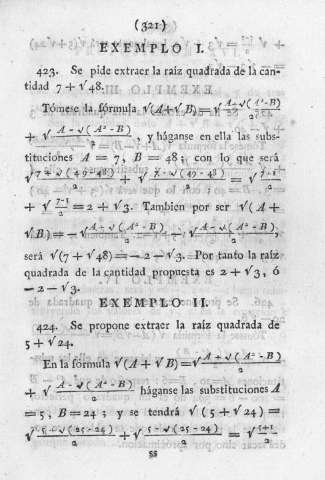 (321)
EXEMPLO I.
423. Se pide extraer la raíz quadrada de la can-
tidad 7 + √48.
Tómese la fórmula √(A+√B) = √ A+√(A²-B) / 2
+ √ A-√(A²-B) / 2 , y háganse en ella las subs-
tituciones A = 7, B = 48; con lo que será
√ 7+√(49-48) / 2 + √ 7-√(49-48) / 2 = √ 7+1 / 2
+ √ 7-1 / 2 = 2 + √3. Tambien por ser √(A +
√B) = - √ A+√(A²-B) / 2 - √ A-√(A²-B) / 2 ,
será √(7 + √48) = - 2 - √3. Por tanto la raíz
quadrada de la cantidad propuesta es 2 + √3, ó
- 2 - √3.
EXEMPLO II.
424. Se propone extraer la raíz quadrada de
5 + √24.
En la fórmula √(A + √B) = √ A+√(A²-B) / 2
+ √ A-√(A²-B) / 2 háganse las substituciones A
= 5, B = 24; y se tendrá √(5 + √24) =
√ 5+√(25-24) / 2 + √ 5-√(25-24) / 2 = √ 5+1 / 2
SS